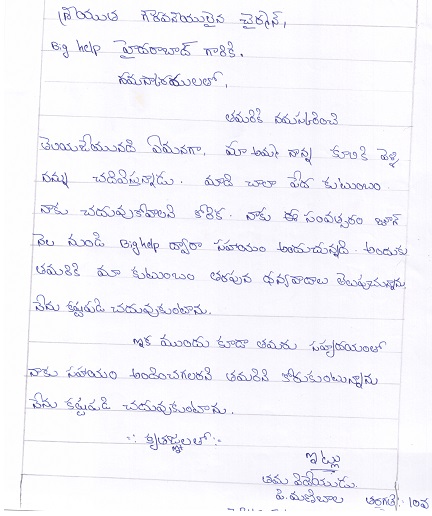 శ్రీయుత గౌరవనీయులైన చైర్మన్,
Big help హైదరాబాద్ గారికి.
నమస్కారములతో,
తమరికి నమస్కరించి
తెలియజేయునది ఏమనగా. మా అమ్మ నాన్న కూలికి వెళ్ళి
నన్ను చదివిస్తున్నాడు. మాది చాలా పేద కుటుంబం
నాకు చదువుకోవాలని కోరిక. నాకు ఈ సంవత్సరం జూన్
నెల నుండి Big help ద్వారా సహాయం అందుచున్నది. అందుకు
తమరికి మా కుటుంబం తరపున ధన్యవాదాలు తెలుపుచున్నాను
నేను కష్టపడి చదువుకుంటాను.
ఇక ముందు కూడా తమరు సహృదయంతో
నాకు సహాయం అందించగలరని తమరిని కోరుకుంటున్నాను
నేను కష్టపడి చదువుకుంటాను.
∵ కృతజ్ఞతలతో ∵
ఇట్లు
తమ విధేయుడు.
పి. మణిబాల తరగతి:- 10వ